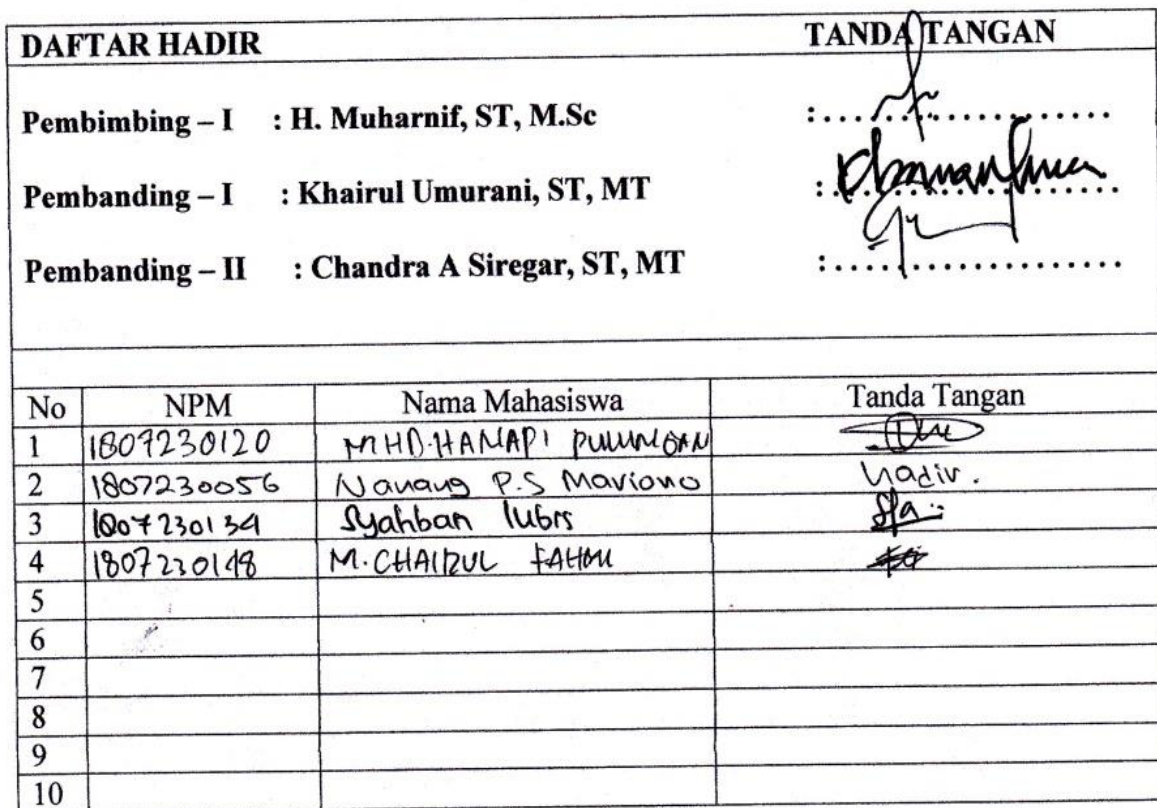 DAFTAR HADIR TANDA TANGAN
Pembimbing – I : H. Muharnif, ST, M.Sc :....................
Pembanding – I : Khairul Umurani, ST, MT :....................
Pembanding – II : Chandra A Siregar, ST, MT :....................
No NPM Nama Mahasiswa Tanda Tangan
1 1807230120 MHD.HANAPI PULUNGAN
2 1807230056 Nanang P.S Mariono hadir.
3 1807230134 Syahban lubis
4 1807230148 M.CHAIRUL FAHMI
5
6
7
8
9
10